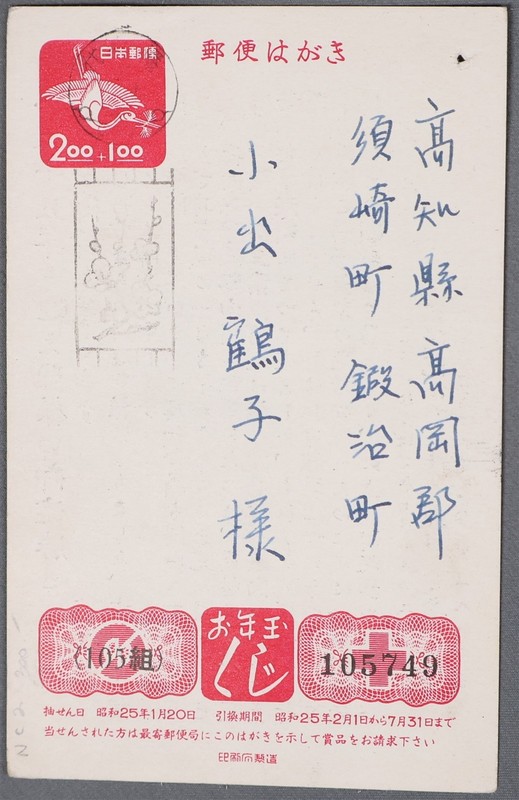 郵便はがき
日本郵便
2.00+1.00
高知縣高岡郡
須崎町鍛治町
小出鶴子様
お年玉
くじ
105組
105749
抽せん日 昭和25年1月20日 引換期間 昭和25年2月1日から7月31日まで
当せんされた方は最寄郵便局にこのはがきを示して賞品をお請求下さい